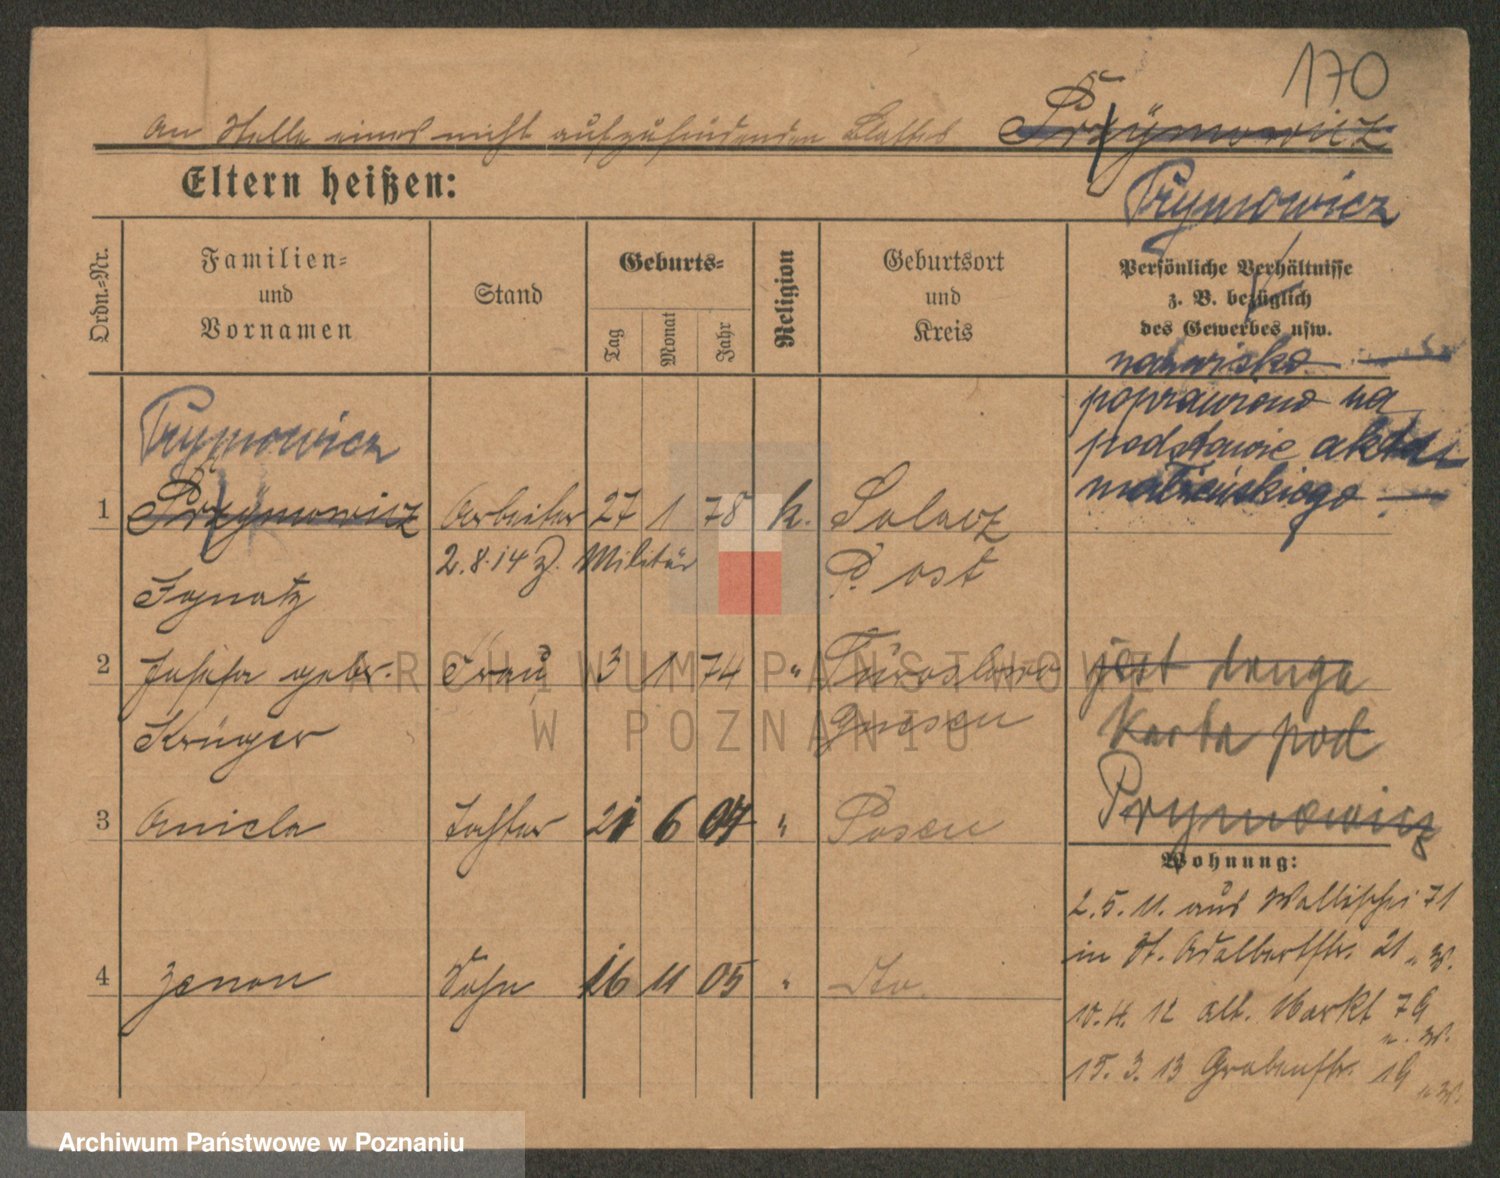 170
An Stelle eines nicht aufzufindenden Blattes Przymowicz
Eltern heißen:
Prymowicz
Ordn.-Nr.
Familien-
und
Vornamen
Stand
Geburts-
Tag
Monat
Jahr
Religion
Geburtsort
und
Kreis
Persönliche Verhältnisse
z. B. bezüglich
des Gewerbes usw.
nazwisko
poprawiono na
podstawie aktu
małżeńskiego
Prymowicz
1 Przymowicz Arbeiter 27 1 78 k. Solacz
2.8.14 z. Militär P. Ost
Ignatz
2 Josefa geb. Frau 3 1 74 "
Krüger Gnesen
jest druga
Karta pod
Prymowicz
3 Aniela Tochter 21 6 04 " Posen
4 Zenon Sohn 16 11 05 " Do.
Wohnung:
2.5.11. aus Wallischei 71
in St. Adalbertstr. 21
10.4.12 Alt. Markt 79
15.3.13 Grabenstr. 19
ARCHIWUM PAŃSTWOWE
W POZNANIU
Archiwum Państwowe w Poznaniu